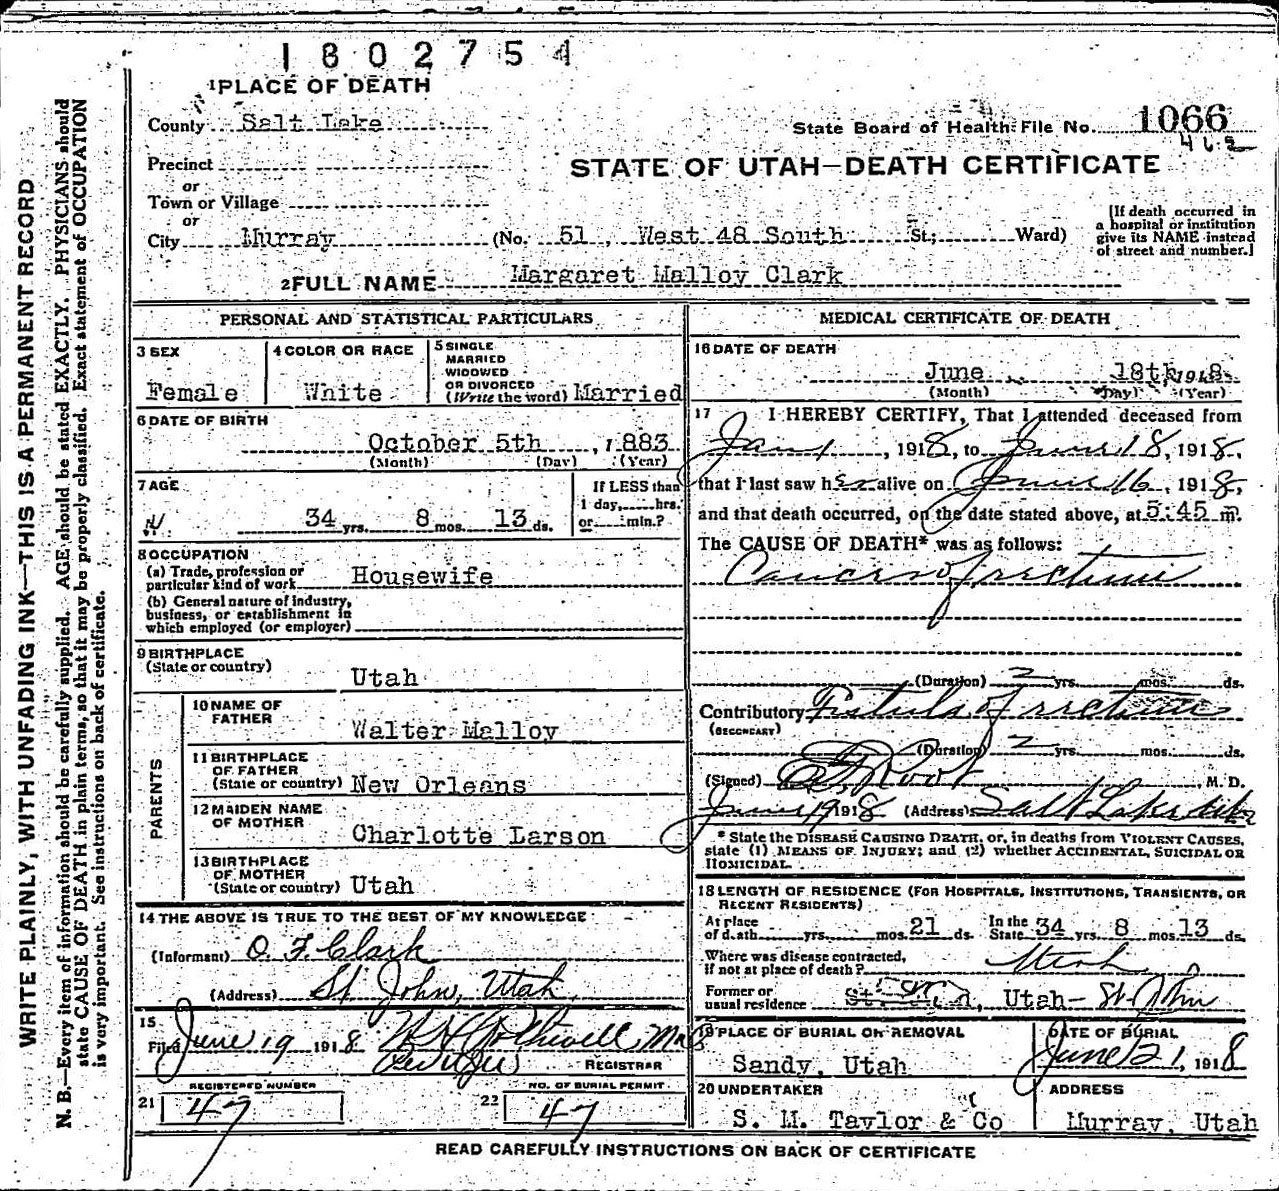 1802754
1 PLACE OF DEATH
County Salt Lake
State Board of Health File No. 1066
462
Precinct
STATE OF UTAH—DEATH CERTIFICATE
or
Town or Village
or
City Murray (No. 51, West 48 South St.; Ward)
[If death occurred in
a hospital or institution
give its NAME instead
of street and number.]
2 FULL NAME Margaret Malloy Clark
PERSONAL AND STATISTICAL PARTICULARS
3 SEX
Female
4 COLOR OR RACE
White
5 SINGLE
MARRIED
WIDOWED
OR DIVORCED
(Write the word) Married
6 DATE OF BIRTH
October 5th, 1883
(Month) (Day) (Year)
7 AGE
34 yrs. 8 mos. 13 ds.
If LESS than
1 day, hrs.
or min.?
8 OCCUPATION
(a) Trade, profession or
particular kind of work Housewife
(b) General nature of industry,
business, or establishment in
which employed (or employer)
9 BIRTHPLACE
(State or country) Utah
PARENTS
10 NAME OF
FATHER Walter Malloy
11 BIRTHPLACE
OF FATHER
(State or country) New Orleans
12 MAIDEN NAME
OF MOTHER Charlotte Larson
13 BIRTHPLACE
OF MOTHER
(State or country) Utah
14 THE ABOVE IS TRUE TO THE BEST OF MY KNOWLEDGE
(Informant) O. F. Clark
(Address) St John, Utah
15
Filed June 19 1918
REGISTRAR
REGISTERED NUMBER
21 47
NO. OF BURIAL PERMIT
22 47
MEDICAL CERTIFICATE OF DEATH
16 DATE OF DEATH
June 18th, 1918
(Month) (Day) (Year)
17 I HEREBY CERTIFY, That I attended deceased from
Jan 1, 1918, to June 18, 1918,
that I last saw her alive on June 16, 1918,
and that death occurred, on the date stated above, at 5:45 m.
The CAUSE OF DEATH* was as follows:
Cancer of rectum
(Duration) 2 yrs. mos. ds.
Contributory Fistula of rectum
(SECONDARY)
(Duration) 2 yrs. mos. ds.
(Signed) Root, M. D.
June 19 1918 (Address) Salt Lake
* State the DISEASE CAUSING DEATH, or, in deaths from VIOLENT CAUSES,
state (1) MEANS OF INJURY; and (2) whether ACCIDENTAL, SUICIDAL OR
HOMICIDAL.
18 LENGTH OF RESIDENCE (FOR HOSPITALS, INSTITUTIONS, TRANSIENTS, OR
RECENT RESIDENTS)
At place
of death yrs. mos. 21 ds.
In the
State 34 yrs. 8 mos. 13 ds.
Where was disease contracted,
if not at place of death? Utah
Former or
usual residence Utah- St. John
19 PLACE OF BURIAL OR REMOVAL
Sandy, Utah
DATE OF BURIAL
June 21, 1918
20 UNDERTAKER
S. M. Taylor & Co
ADDRESS
Murray, Utah
READ CAREFULLY INSTRUCTIONS ON BACK OF CERTIFICATE
WRITE PLAINLY, WITH UNFADING INK—THIS IS A PERMANENT RECORD
N. B.—Every item of information should be carefully supplied. AGE should be stated EXACTLY. PHYSICIANS should
state CAUSE OF DEATH in plain terms, so that it may be properly classified. Exact statement of OCCUPATION
is very important. See instructions on back of certificate.